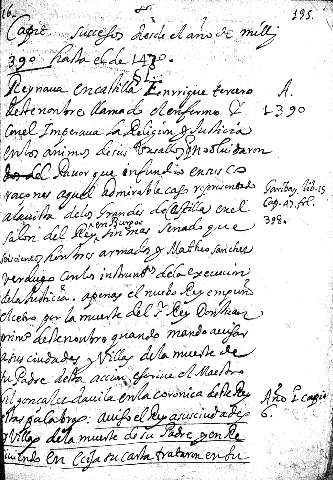 16.
195.
Cap.º sucessos desde el año de mill y
390 hasta el de 1430.
Reynaua en castilla Enrrique tercero
deste nonbre llamado el enfermo
A.
1390
con el Imperaua la Religion y Justicia
en los animos de sus Vasallos
Pauor que infundio en sus co
raçones aquel admirable caso representado
Garibay lib. 15
Cap. 47. fol.
398.
a la vista de los Grandes de Castilla en el
salon del Rey en Burgos sin mas senado que
honbres armados y Matheo sanches
verdugo con los instrumº de la execucion
de la Justicia. apenas el nuebo Rey empuño
el cetro por la muerte del Rey Don Juan
primº deste nonbre quando mando auisar
a sus ciudades y Villas de la muerte de
su Padre desta accion escriue el Maestro
Gil gonçales dauila en la coronica deste Rey
estas palabras: auiso el Rey a sus ciudades
Año 1. cap.
6.
y Villas de la muerte de su Padre y en Re
ciuiendo en Ecija su carta trataron en su